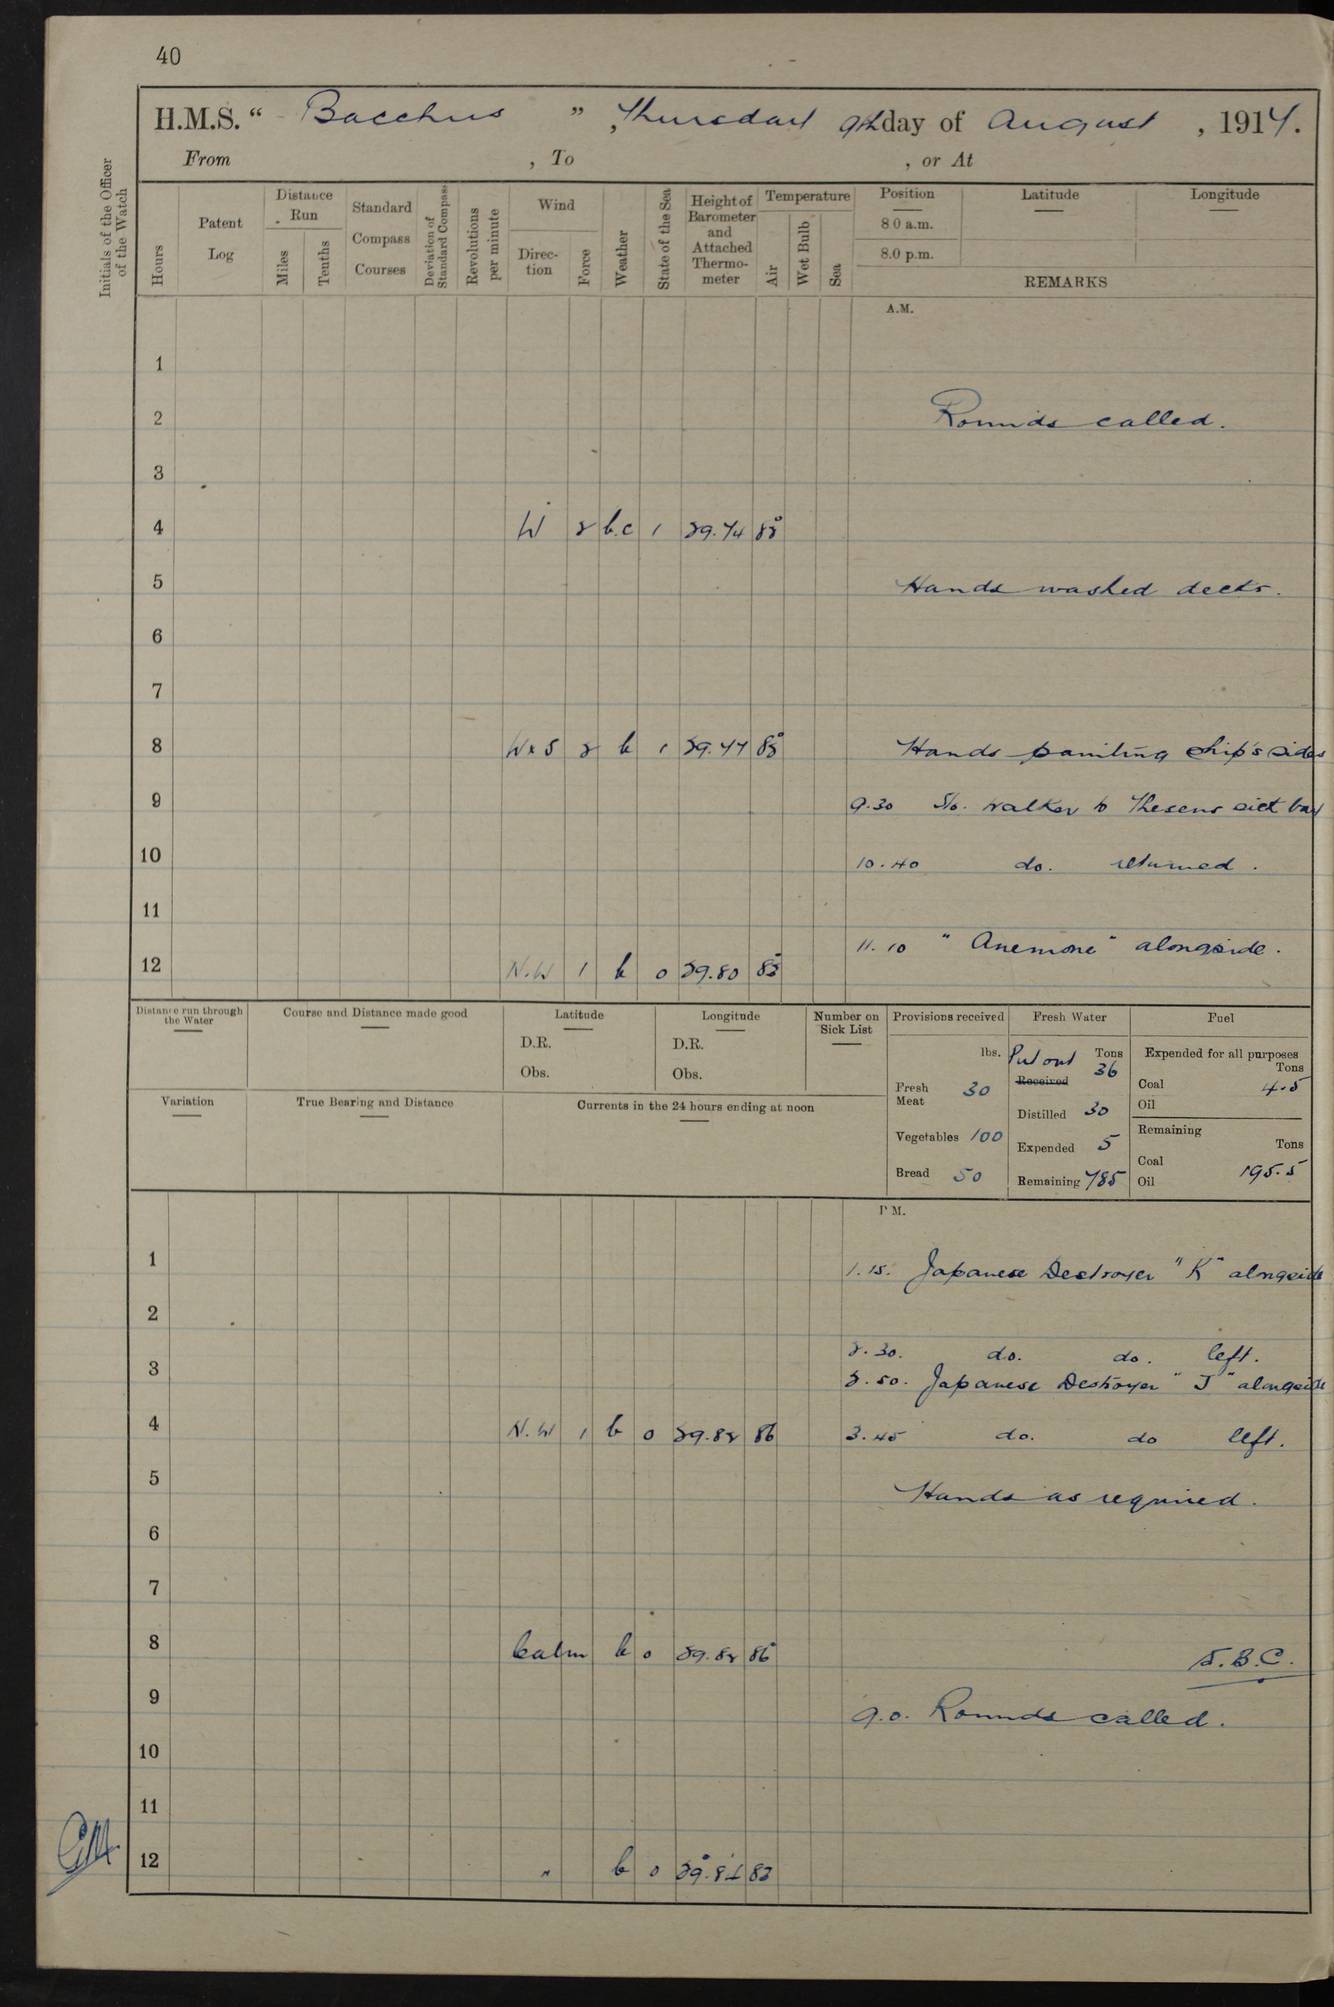 40
H.M.S. " Bacchus " , Thursday 9th day of August , 1917.
From , To , or At
Initials of the Officer of the Watch
Hours
Patent Log
Distance Run
Miles
Tenths
Standard Compass Courses
Deviation of Standard Compass
Revolutions per minute
Wind
Direction
Force
Weather
State of the Sea
Height of Barometer and Attached Thermometer
Temperature
Air
Wet Bulb
Sea
Position Latitude Longitude
8 0 a.m.
8.0 p.m.
REMARKS
A.M.
1
2 Rounds called.
3
4 W 2 b.c 1 29.74
5 Hands washed decks.
6
7
8 WxS 2 b 1 29.77 Hands painting ship's sides
9 9.30 Sto. Walker to Theseus
10 10.40 do. returned.
11
11.10 "Anemone" alongside.
12 N.W 1 b 0 29.80
Distance run through the Water
Course and Distance made good
Latitude
D.R.
Obs.
Longitude
D.R.
Obs.
Number on Sick List
Provisions received
lbs.
Fresh Meat 30
Vegetables 100
Bread 50
Fresh Water
Put out Tons
Received 36
Distilled 30
Expended 5
Remaining 785
Fuel
Expended for all purposes
Tons
Coal 4.5
Oil
Remaining
Tons
Coal 195.5
Oil
Variation
True Bearing and Distance
Currents in the 24 hours ending at noon
P.M.
1 1.15. Japanese Destroyer "K" alongside
2
2.30. do. do. left.
3 2.50. Japanese Destroyer "J" alongside
4 N.W 1 b 0 29.82 86 3.45 do. do left.
5 Hands as required.
6
7
8 Calm b 0 29.82 86 S.B.C.
9 9.0. Rounds called.
10
11
12 " b 0